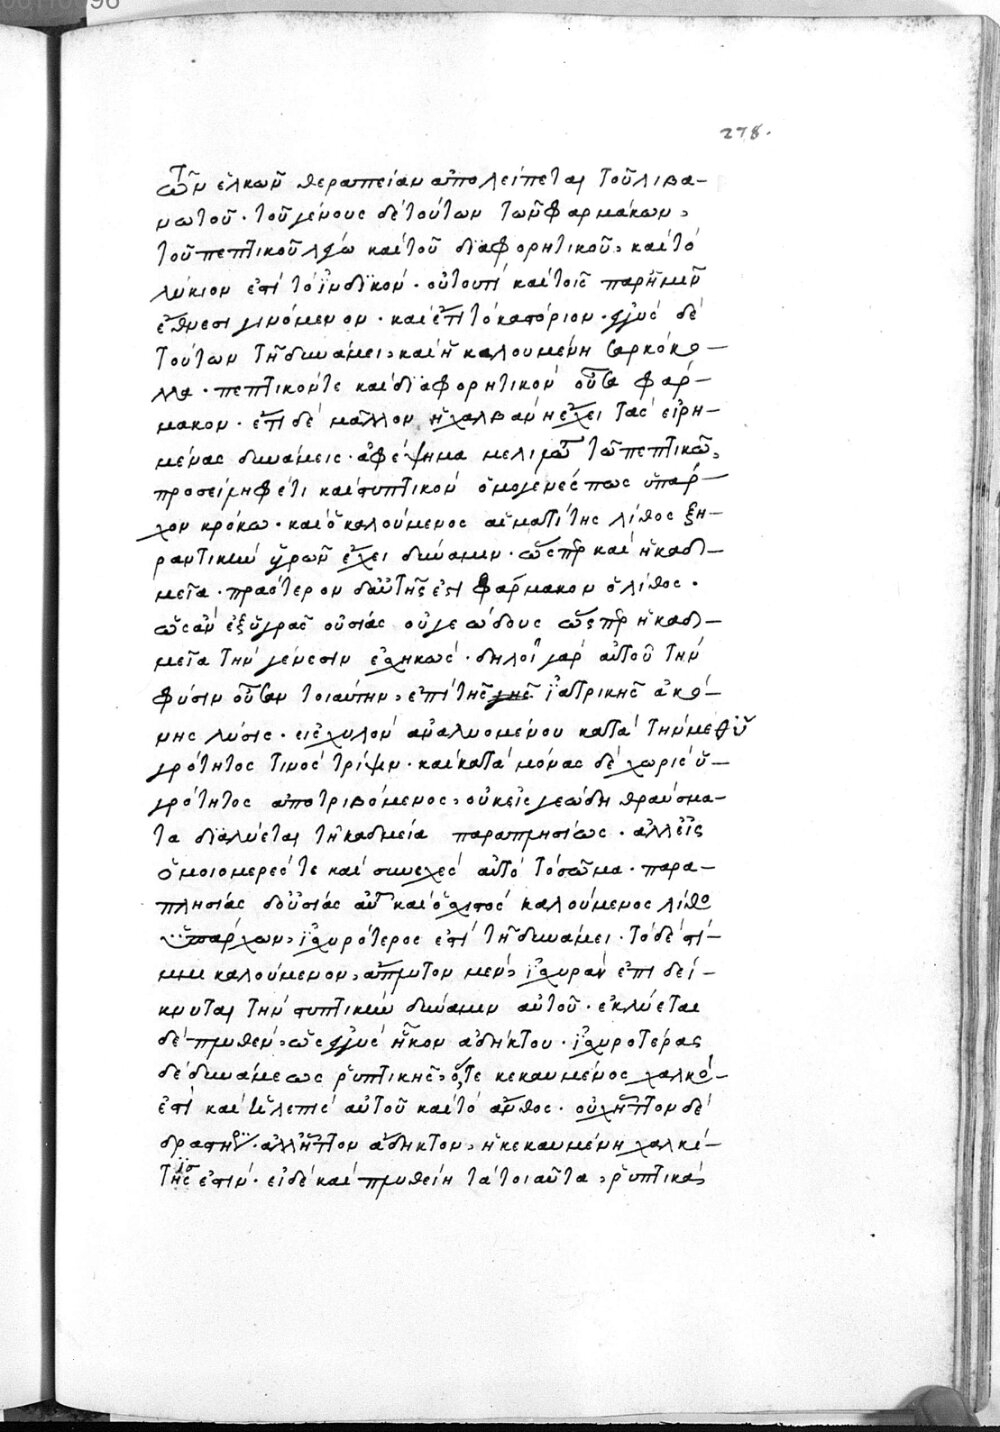 278.
τῶν ἑλκῶν θεραπείαν ἀπολείπεται τοῦ λιβα-
νωτοῦ. τοῦ γένους δὲ τούτων τῶν φαρμάκων,
τοῦ πεπτικοῦ λέγω καὶ τοῦ διαφορητικοῦ, καὶ τὸ
λύκιον ἐστὶ τὸ ἰνδικόν. οὑτοσὶ καὶ τοῖς παρ' ἡμῖν
ἔθνεσι γινόμενον. καὶ ἔτι τὸ καστόριον. ἐγγὺς δὲ
τούτων τῇ δυνάμει, καὶ ἡ καλουμένη σαρκοκό-
λλα. πεπτικόν τε καὶ διαφορητικὸν οὖσα φάρ-
μακον. ἔτι δὲ μᾶλλον ἡ χαλβάνη ἔχει τὰς εἰρη-
μένας δυνάμεις. ἀφέψημα μελιλώτου τῶ πεπτικῶ,
προσείληφέ τι καὶ στυπτικὸν ὁμογενές πως ὑπάρ-
χον κρόκω. καὶ ὁ καλούμενος αἱματίτης λίθος ξη-
ραντικὴν ὑγρῶν ἔχει δύναμιν. ὥσπερ καὶ ἡ καδ-
μεῖα. πραότερον δ' αὐτῆς ἐστὶ φάρμακον ὁ λίθος.
ὡς ἂν ἐξ ὑγρᾶς οὐσίας οὐ γεώδους ὥσπερ ἡ καδ-
μεῖα τὴν γένεσιν ἐσχηκώς. δηλοῖ γὰρ αὐτοῦ τὴν
φύσιν οὖσαν τοιαύτην, ἐπὶ τῆς γῆς ἰατρικῆς ἀκό-
νης λύσις. εἰς χυλὸν ἀναλυομένου κατὰ τὴν μεθ' ὑ
γρότητός τινος τρίψιν. καὶ κατὰ μόνας δὲ χωρὶς ὑ-
γρότητος ἀποτριβόμενος, οὐκ εἰς γεώδη θραύσμα-
τα διαλύεται τῇ καδμεία παραπλησίως. ἀλλ' εἰς
ὁμοιομερές τε καὶ συνεχὲς αὐτὸ τὸ σῶμα. παρα-
πλησίας δ' οὐσίας αὐτῶ καὶ ὁ σχιστὸς καλούμενος λίθο
ὑπάρχων, ἰσχυρότερος ἐστὶ τῇ δυνάμει. τὸ δὲ στί-
μμι καλούμενον, ἄπλυτον μὲν, ἰσχυρὰν ἐπιδεί-
κνυται τὴν στυπτικὴν δύναμιν αὐτοῦ. ἐκλύεται
δὲ πλυθὲν, ὡς ἐγγὺς ἥκον ἀδήκτου. ἰσχυροτέρας
δὲ δυνάμεως ῥυπτικῆς, ὅ, τε κεκαυμένος χαλκὸ-
ἐστὶ καὶ ἡ λεπὶς αὐτοῦ καὶ τὸ ἄνθος. οὐχ ἧττον δὲ
δραστικὴ. ἀλλ' ἧττον ἄδηκτον, ἡ κεκαυμένη χαλκί-
τις ἐστίν. εἰ δὲ καὶ πλυθείη τὰ τοιαῦτα, ῥυπτικὰ